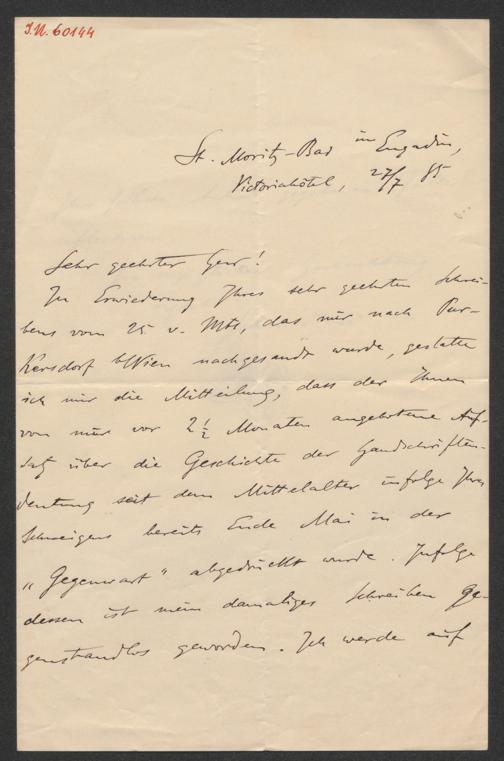 I.N. 60144
St. Moritz-Bad im Engadin,
Victoriahôtel, 27/7 85
Sehr geehrter Herr!
In Erwiederung Ihres sehr geehrten Schrei-
bens vom 25 v. Mts, das mir nach Pur-
kersdorf b/Wien nachgesandt wurde, gestatte
ich mir die Mitteilung, dass der Ihnen
von mir vor 2 1/2 Monaten angebotene Auf-
satz über die Geschichte der Handschriften-
deutung seit dem Mittelalter infolge Ihres
Schweigens bereits Ende Mai in der
„Gegenwart" abgedruckt wurde. Infolge
dessen ist mein damaliges Schreiben ge-
genstandlos geworden. Ich werde auf